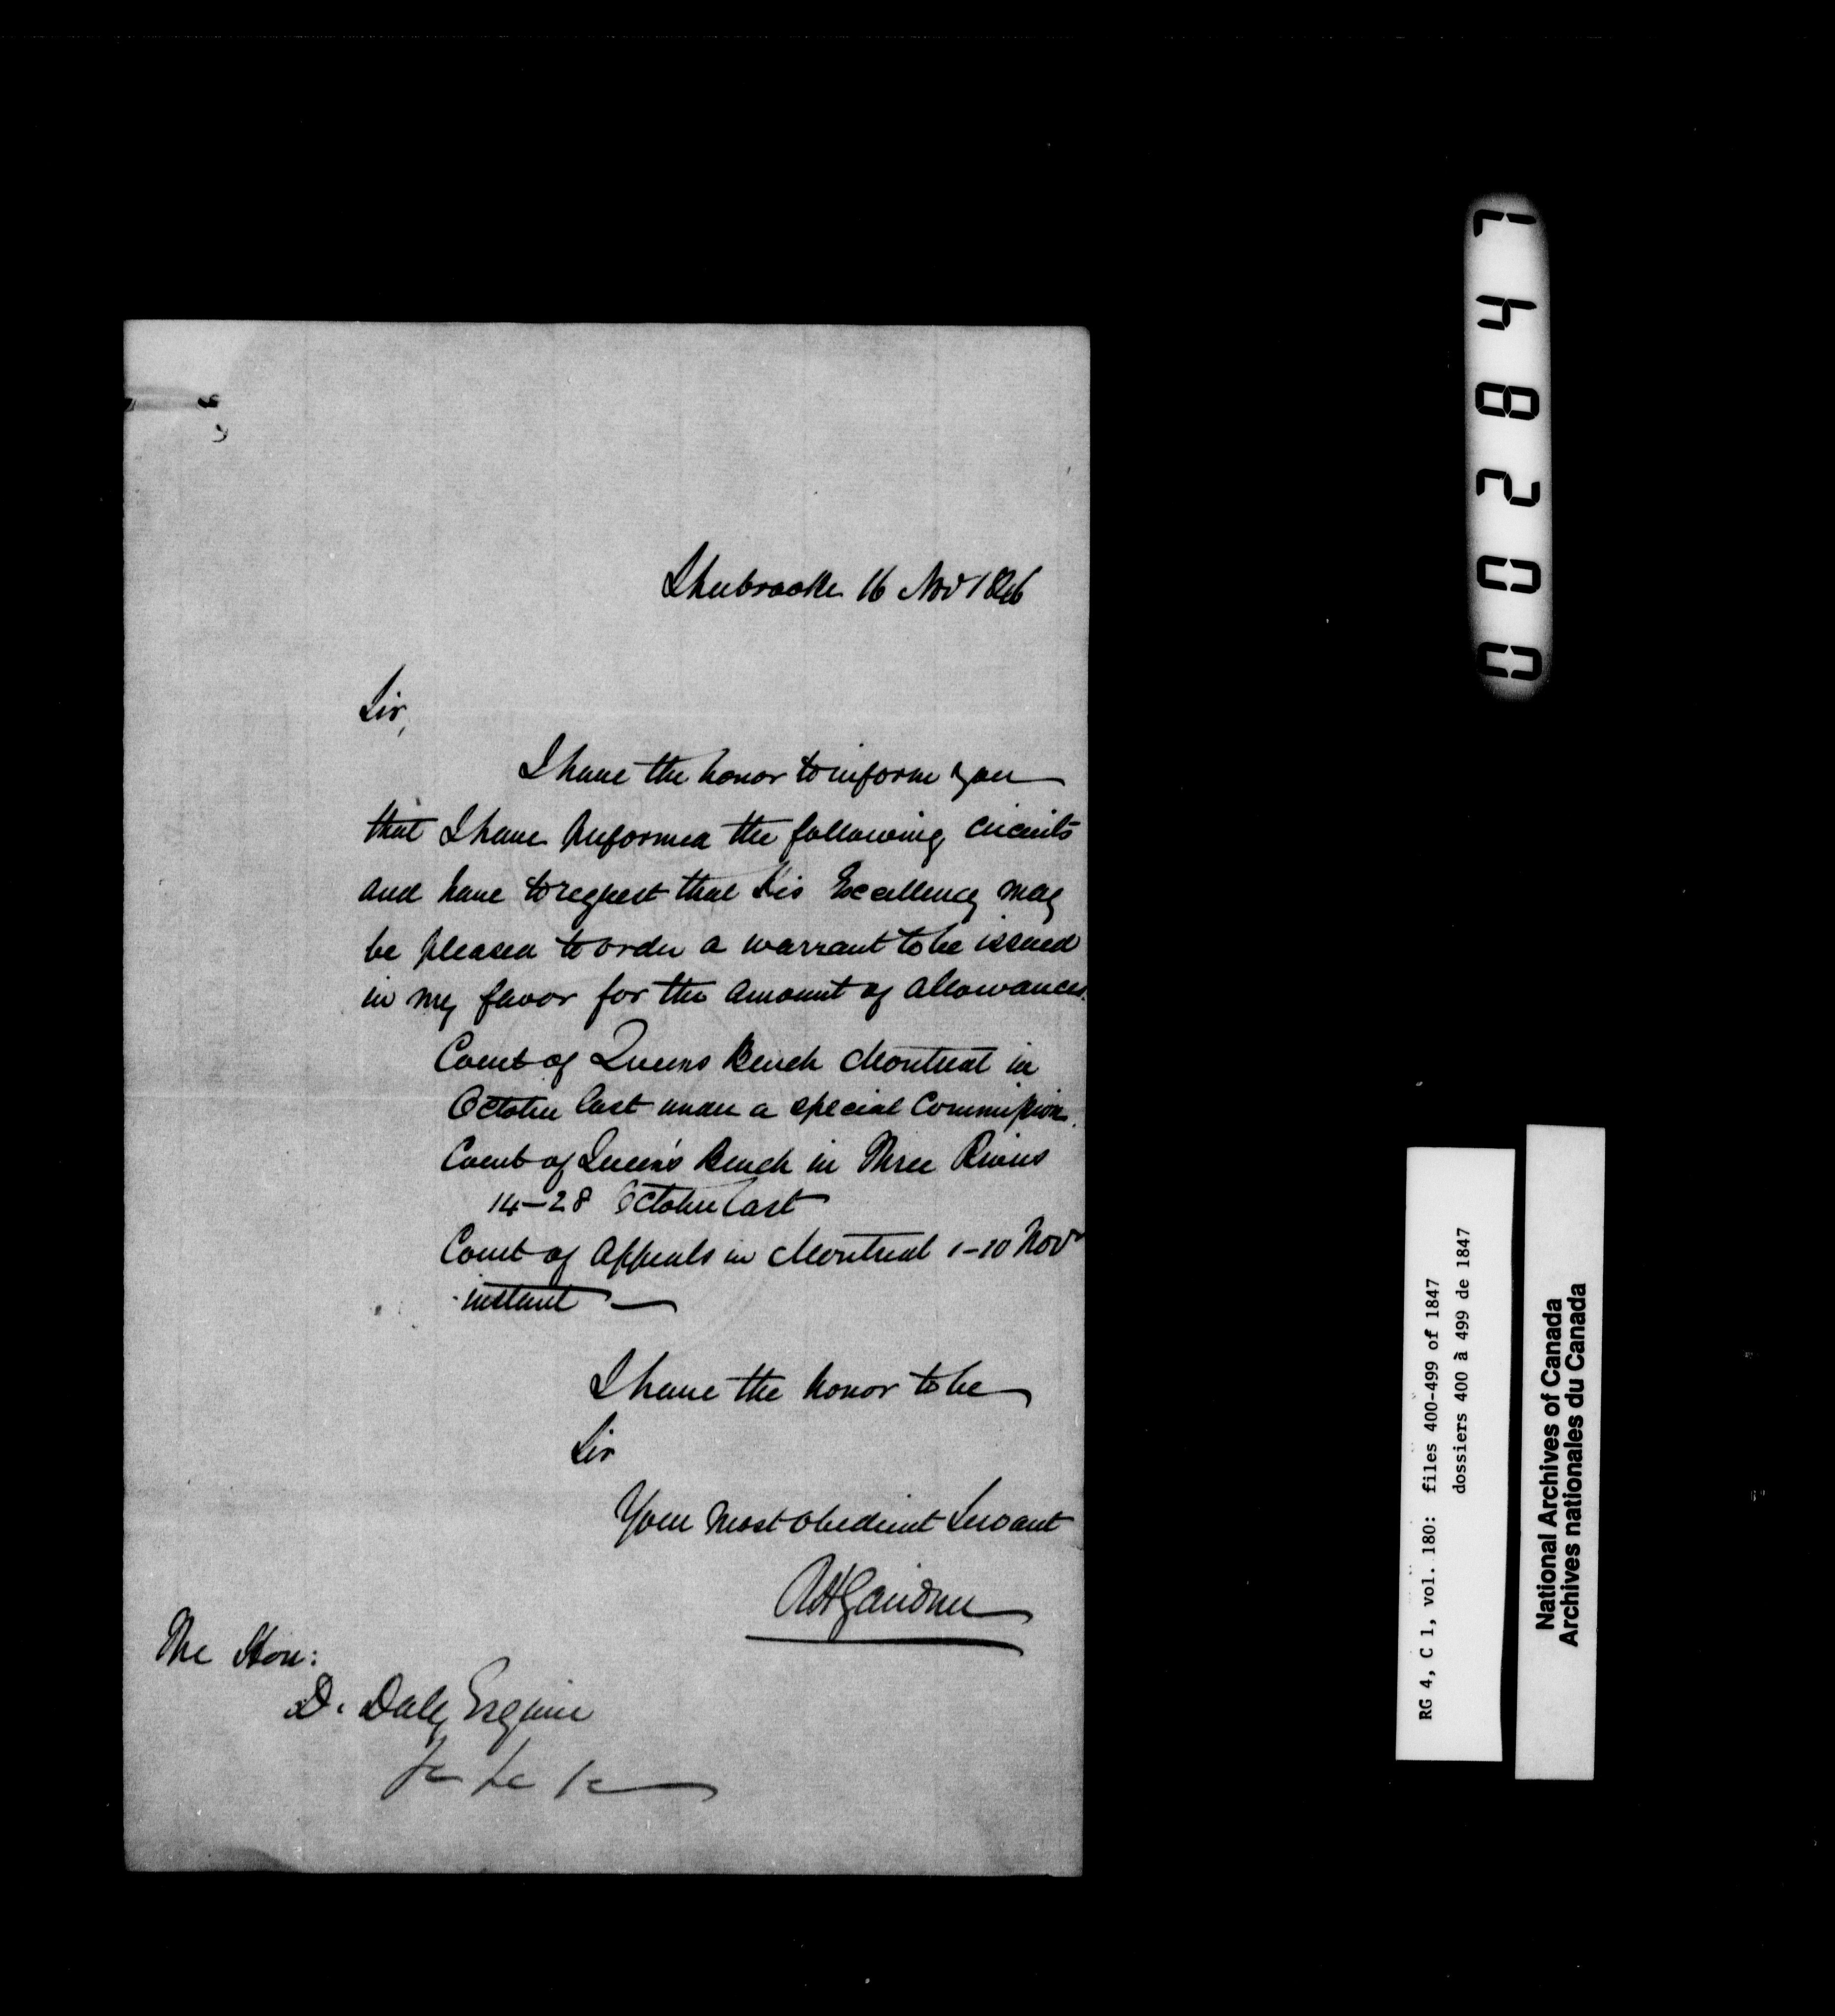 Sherbrooke 16 Nov 1846
Sir,
I have the honor to inform you
that I have performed the following circuits
and have to request that His Excellency may
be pleased to order a warrant to be issued
in my favor for the amount of allowances.
Court of Queens Bench Montreal in
October last under a special Commission.
Court of Queen's Bench in Three Rivers
14-28 October last
Court of Appeals in Montreal 1-10 Novr
instant
I have the honor to be
Sir
Your most obedient Servant
RHGairdner
The Hon:
D. Daly Esquire
&c &c &c
002847
RG 4, C 1, vol. 180: files 400-499 of 1847
dossiers 400 à 499 de 1847
National Archives of Canada
Archives nationales du Canada